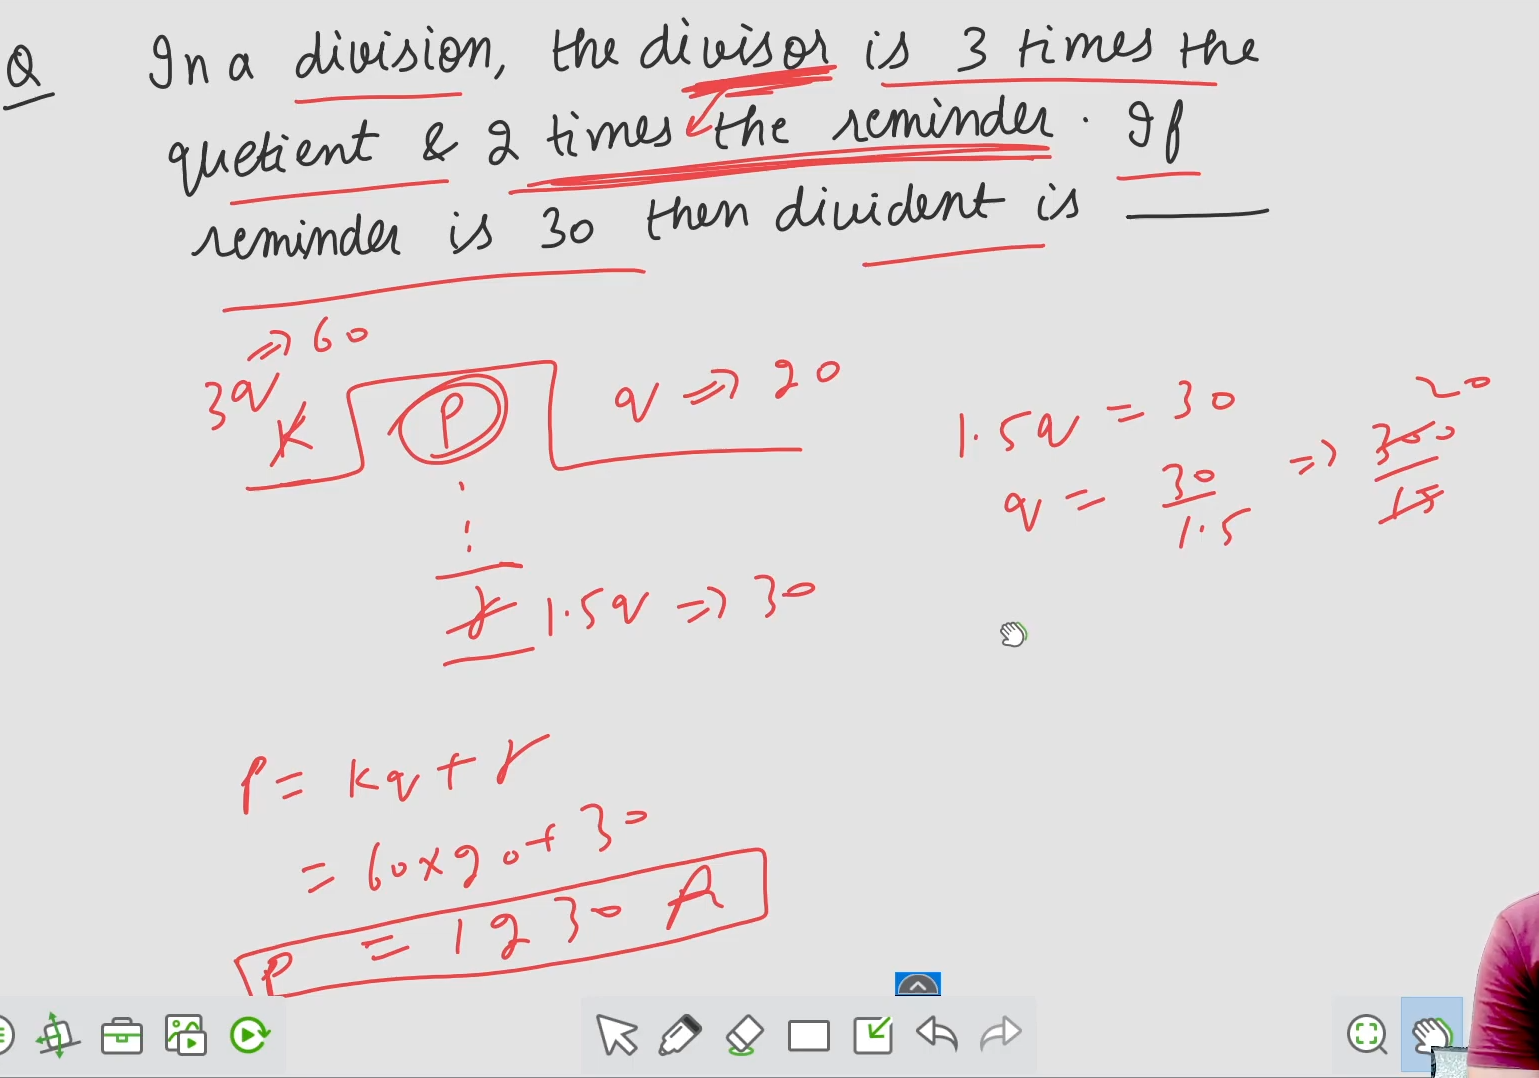 Q In a division, the divisor is 3 times the
quetient & 2 times the reminder. If
reminder is 30 then divident is ____
⇒ 60
3q
K P q ⇒ 20
1.5q = 30
q = 30/1.5 ⇒ 300/15 20
r 1.5q ⇒ 30
P = Kq + r
= 60 x 20 + 30
P = 1230 A